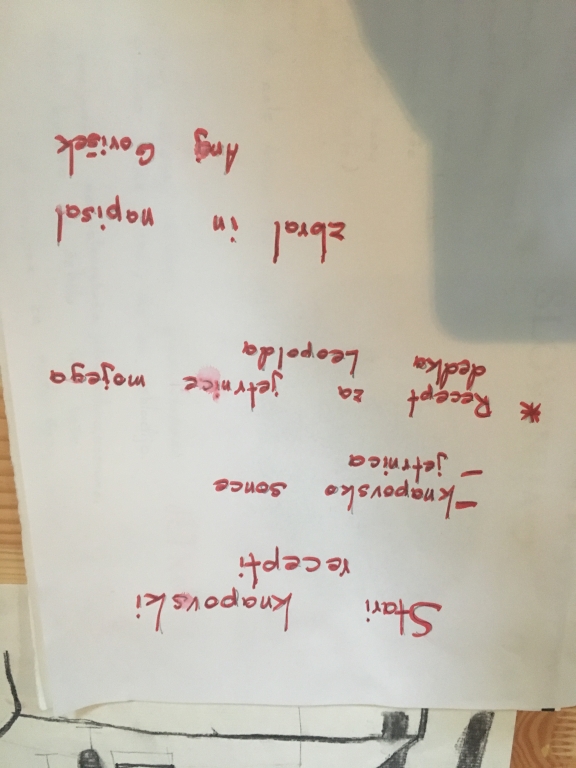 Stari knapovski
recepti
- knapovsko sonce
- jetrnica
* Recept za jetrnice mojega
dedka Leopolda
zbral in napisal
Ang Gorišek